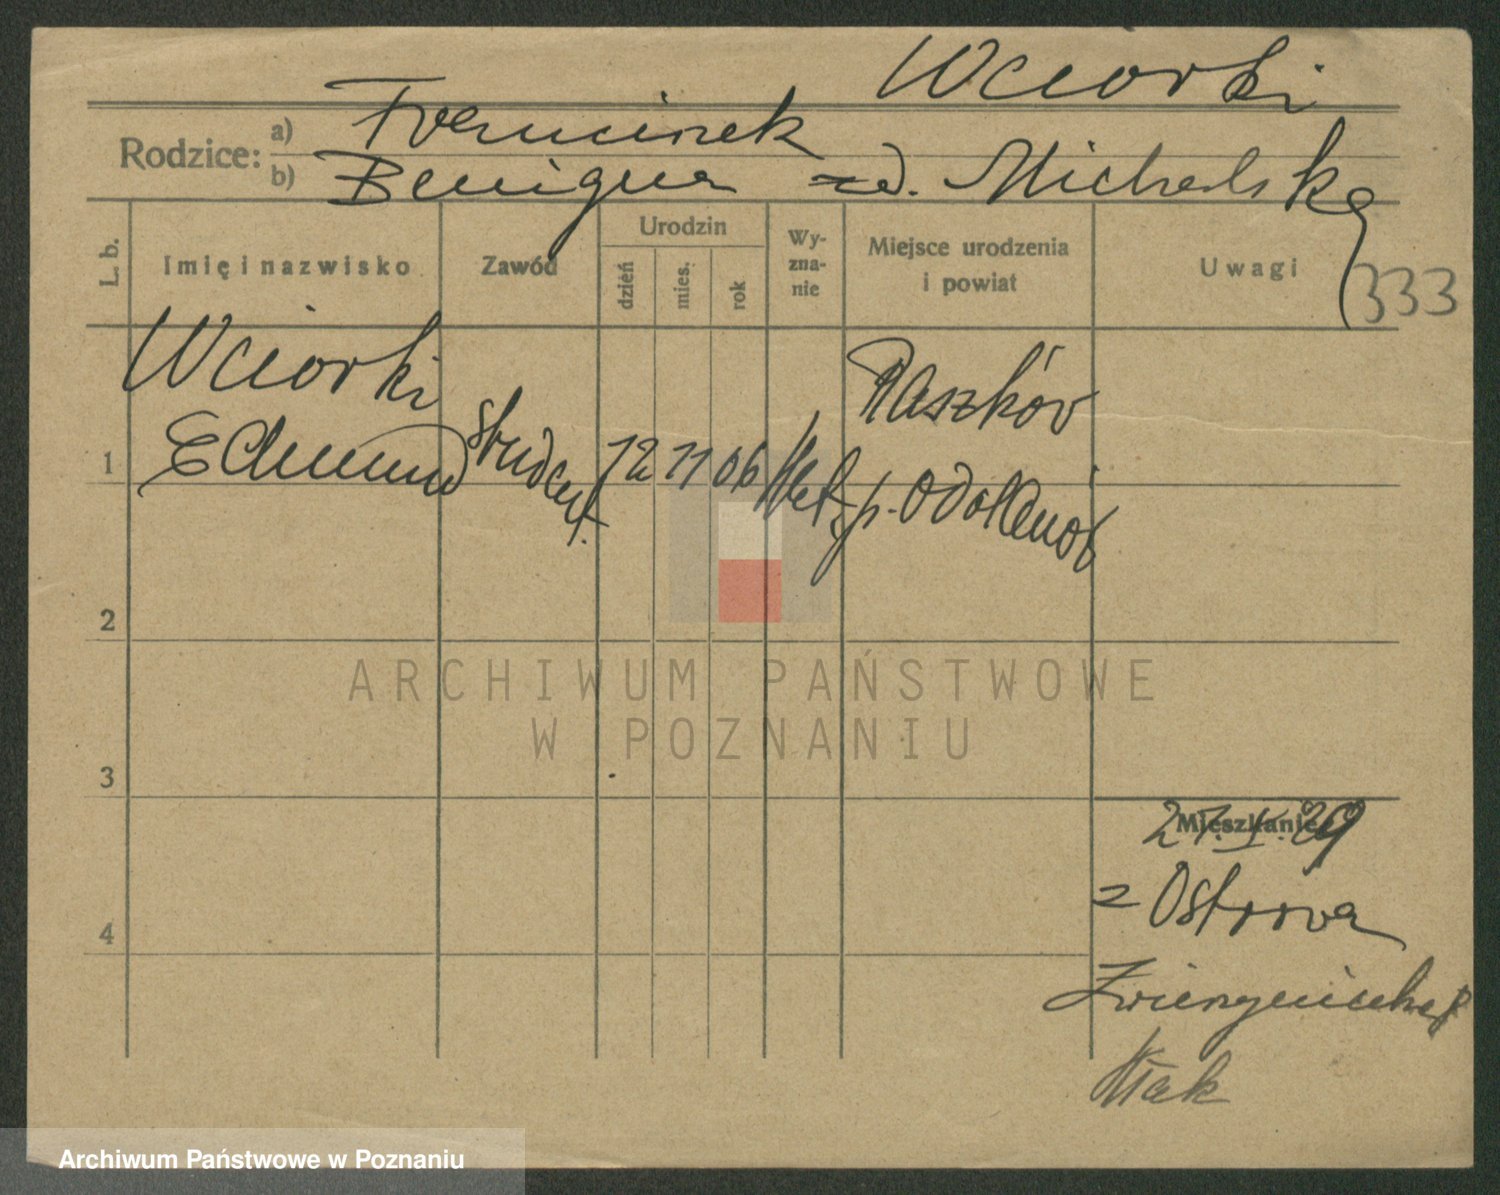 Wciorki
Rodzice: a) Franciszek
b) Benigna zd. Michalska
L. b.
Imię i nazwisko
Zawód
Urodzin
dzień
mies.
rok
Wy-
zna-
nie
Miejsce urodzenia
i powiat
Uwagi
333
1
Wciorki
Edmund
student.
12
11
06
kat.
Raszków
p. Odolanów
2
3
4
ARCHIWUM PAŃSTWOWE
W POZNANIU
Mieszkanie
27. 29
z Ostrowa
Zwierzyniecka
Archiwum Państwowe w Poznaniu